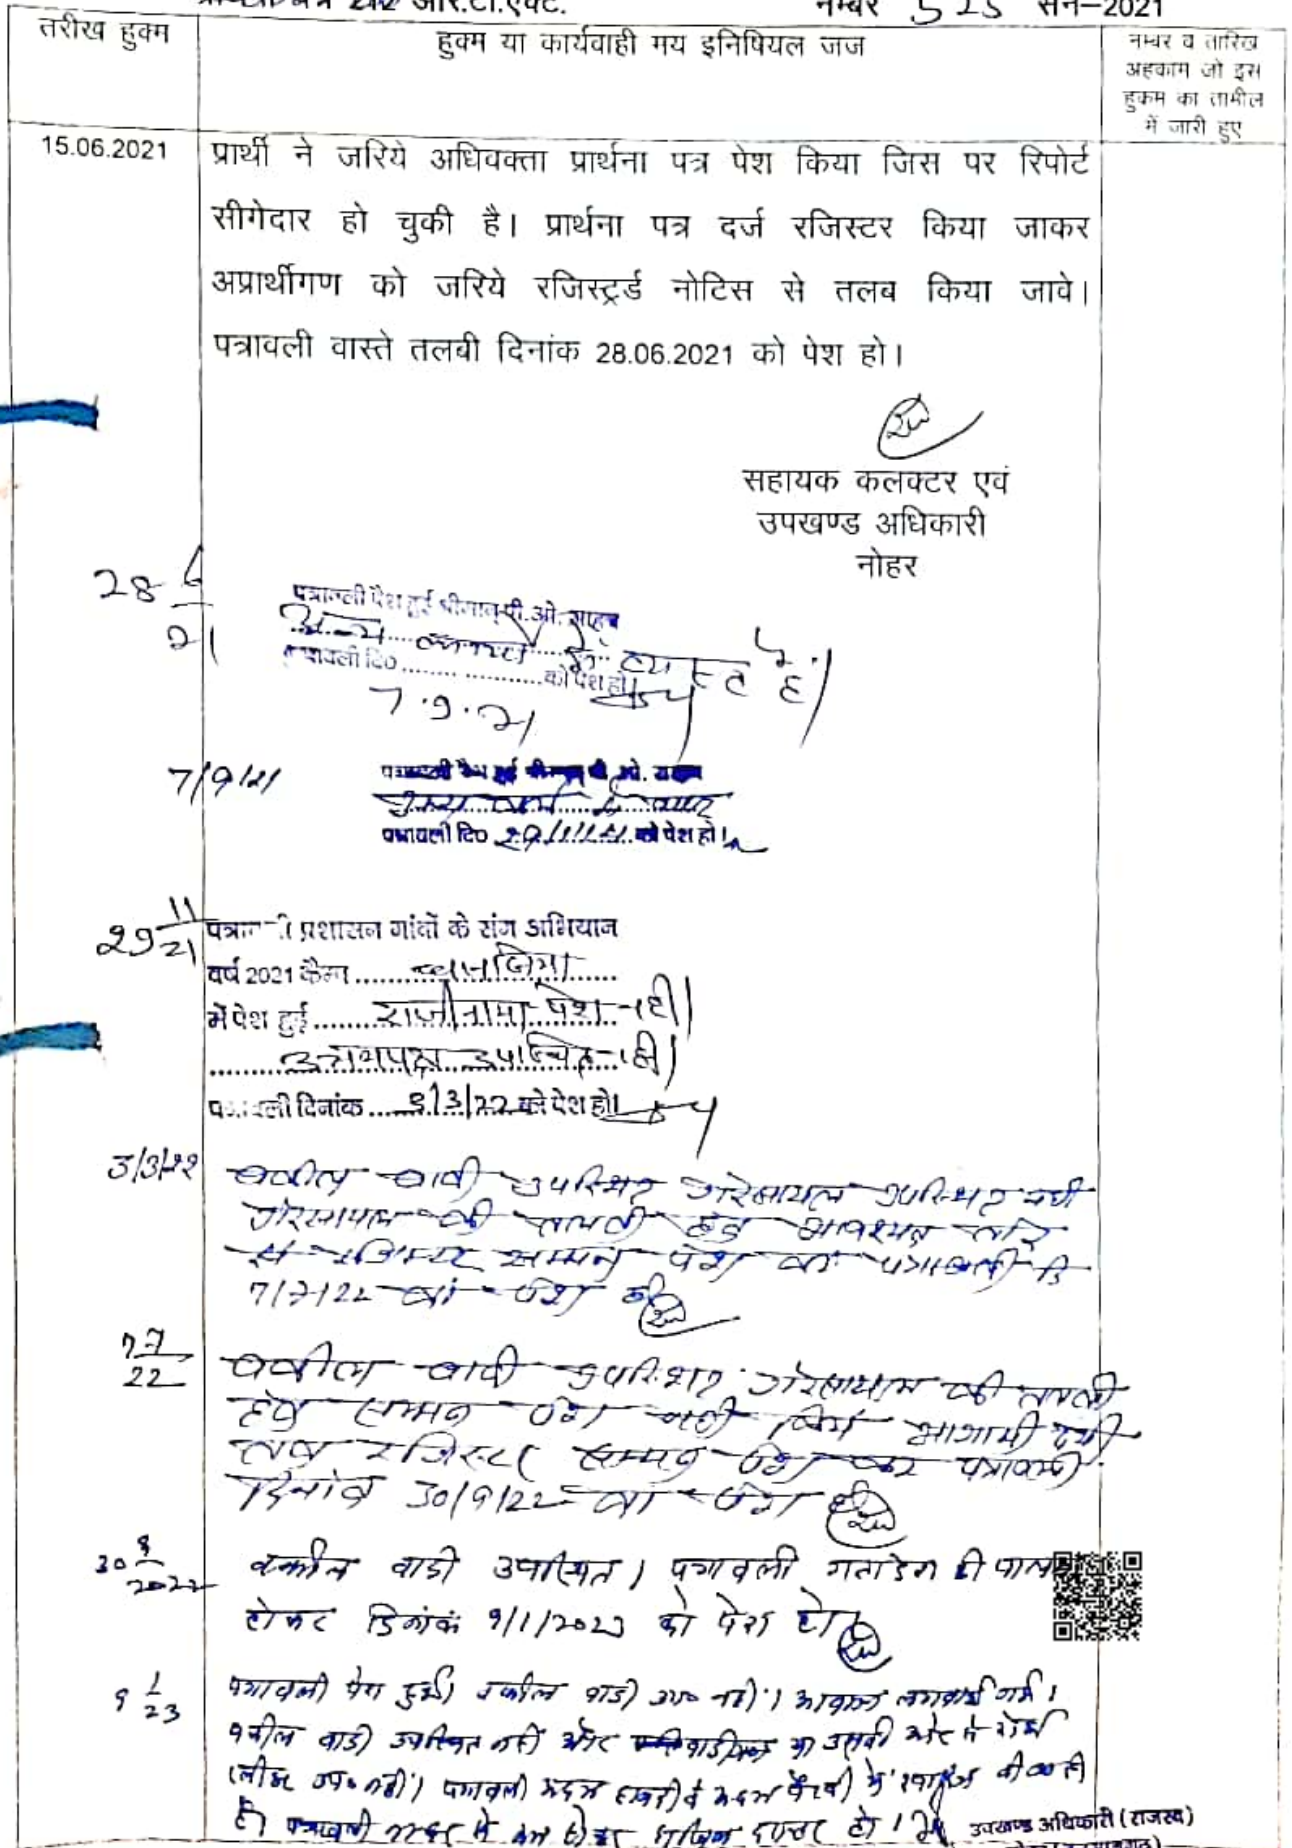 आर.टी.एक्ट. नम्बर 525 सन–2021
तारीख हुक्म
हुक्म या कार्यवाही मय इनिषियल जज
नम्बर व तारिख
अहकाम जो इस
हुकम का तामील
में जारी हुए
15.06.2021
प्रार्थी ने जरिये अधिवक्ता प्रार्थना पत्र पेश किया जिस पर रिपोर्ट
सीगेदार हो चुकी है। प्रार्थना पत्र दर्ज रजिस्टर किया जाकर
अप्रार्थीगण को जरिये रजिस्ट्रर्ड नोटिस से तलब किया जावे।
पत्रावली वास्ते तलबी दिनांक 28.06.2021 को पेश हो।
सहायक कलक्टर एवं
उपखण्ड अधिकारी
नोहर
28 6/21
पत्रावली पेश हुई श्रीमान् पी.ओ. साहब
अन्य कार्यो में व्यस्त है।
पत्रावली दि० को पेश हो।
7.9.21
7/9/21
पत्रावली पेश हुई श्रीमान् पी. ओ. साहब
पत्रावली दि० 29/11/21 को पेश हो।
29 11/21
पत्रावली प्रशासन गांवों के संग अभियान
वर्ष 2021 कैम्प
में पेश हुई राजीनामा पेश नही।
उभयपक्ष उपस्थित नही।
पत्रावली दिनांक 3/3/22 को पेश हो।
3/3/22
वकील वादी उपस्थित गैरसायल उपस्थित नही
गैरसायल की तलबी हेतु आवश्यक तौर
से रजिस्टर सम्मन पेश कर पत्रावली दि
7/7/22 को पेश हो
7 7/22
वकील वादी उपस्थित गैरसायल की तलबी
हेतु सम्मन पेश नही किये आगामी पेशी
तक रजिस्टर सम्मन पेश कर पत्रावली
दिनांक 30/9/22 को पेश हो
30 9/2022
वकील वादी उपस्थित। पत्रावली गतादेश की पालना
होकर दिनांक 9/1/2023 को पेश हो।
9 1/23
पत्रावली पेश हुई। वकील वादी उप० नही। आवाज लगवाई गई।
वकील वादी उपस्थित नहीं और वादीगण या उसकी ओर से कोई
उप० नहीं। पत्रावली अदम हाजरी व अदम पैरवी में खारिज की जाती
है। पत्रावली नम्बर से कम होकर दाखिल दफ्तर हो।
उपखण्ड अधिकारी (राजस्व)